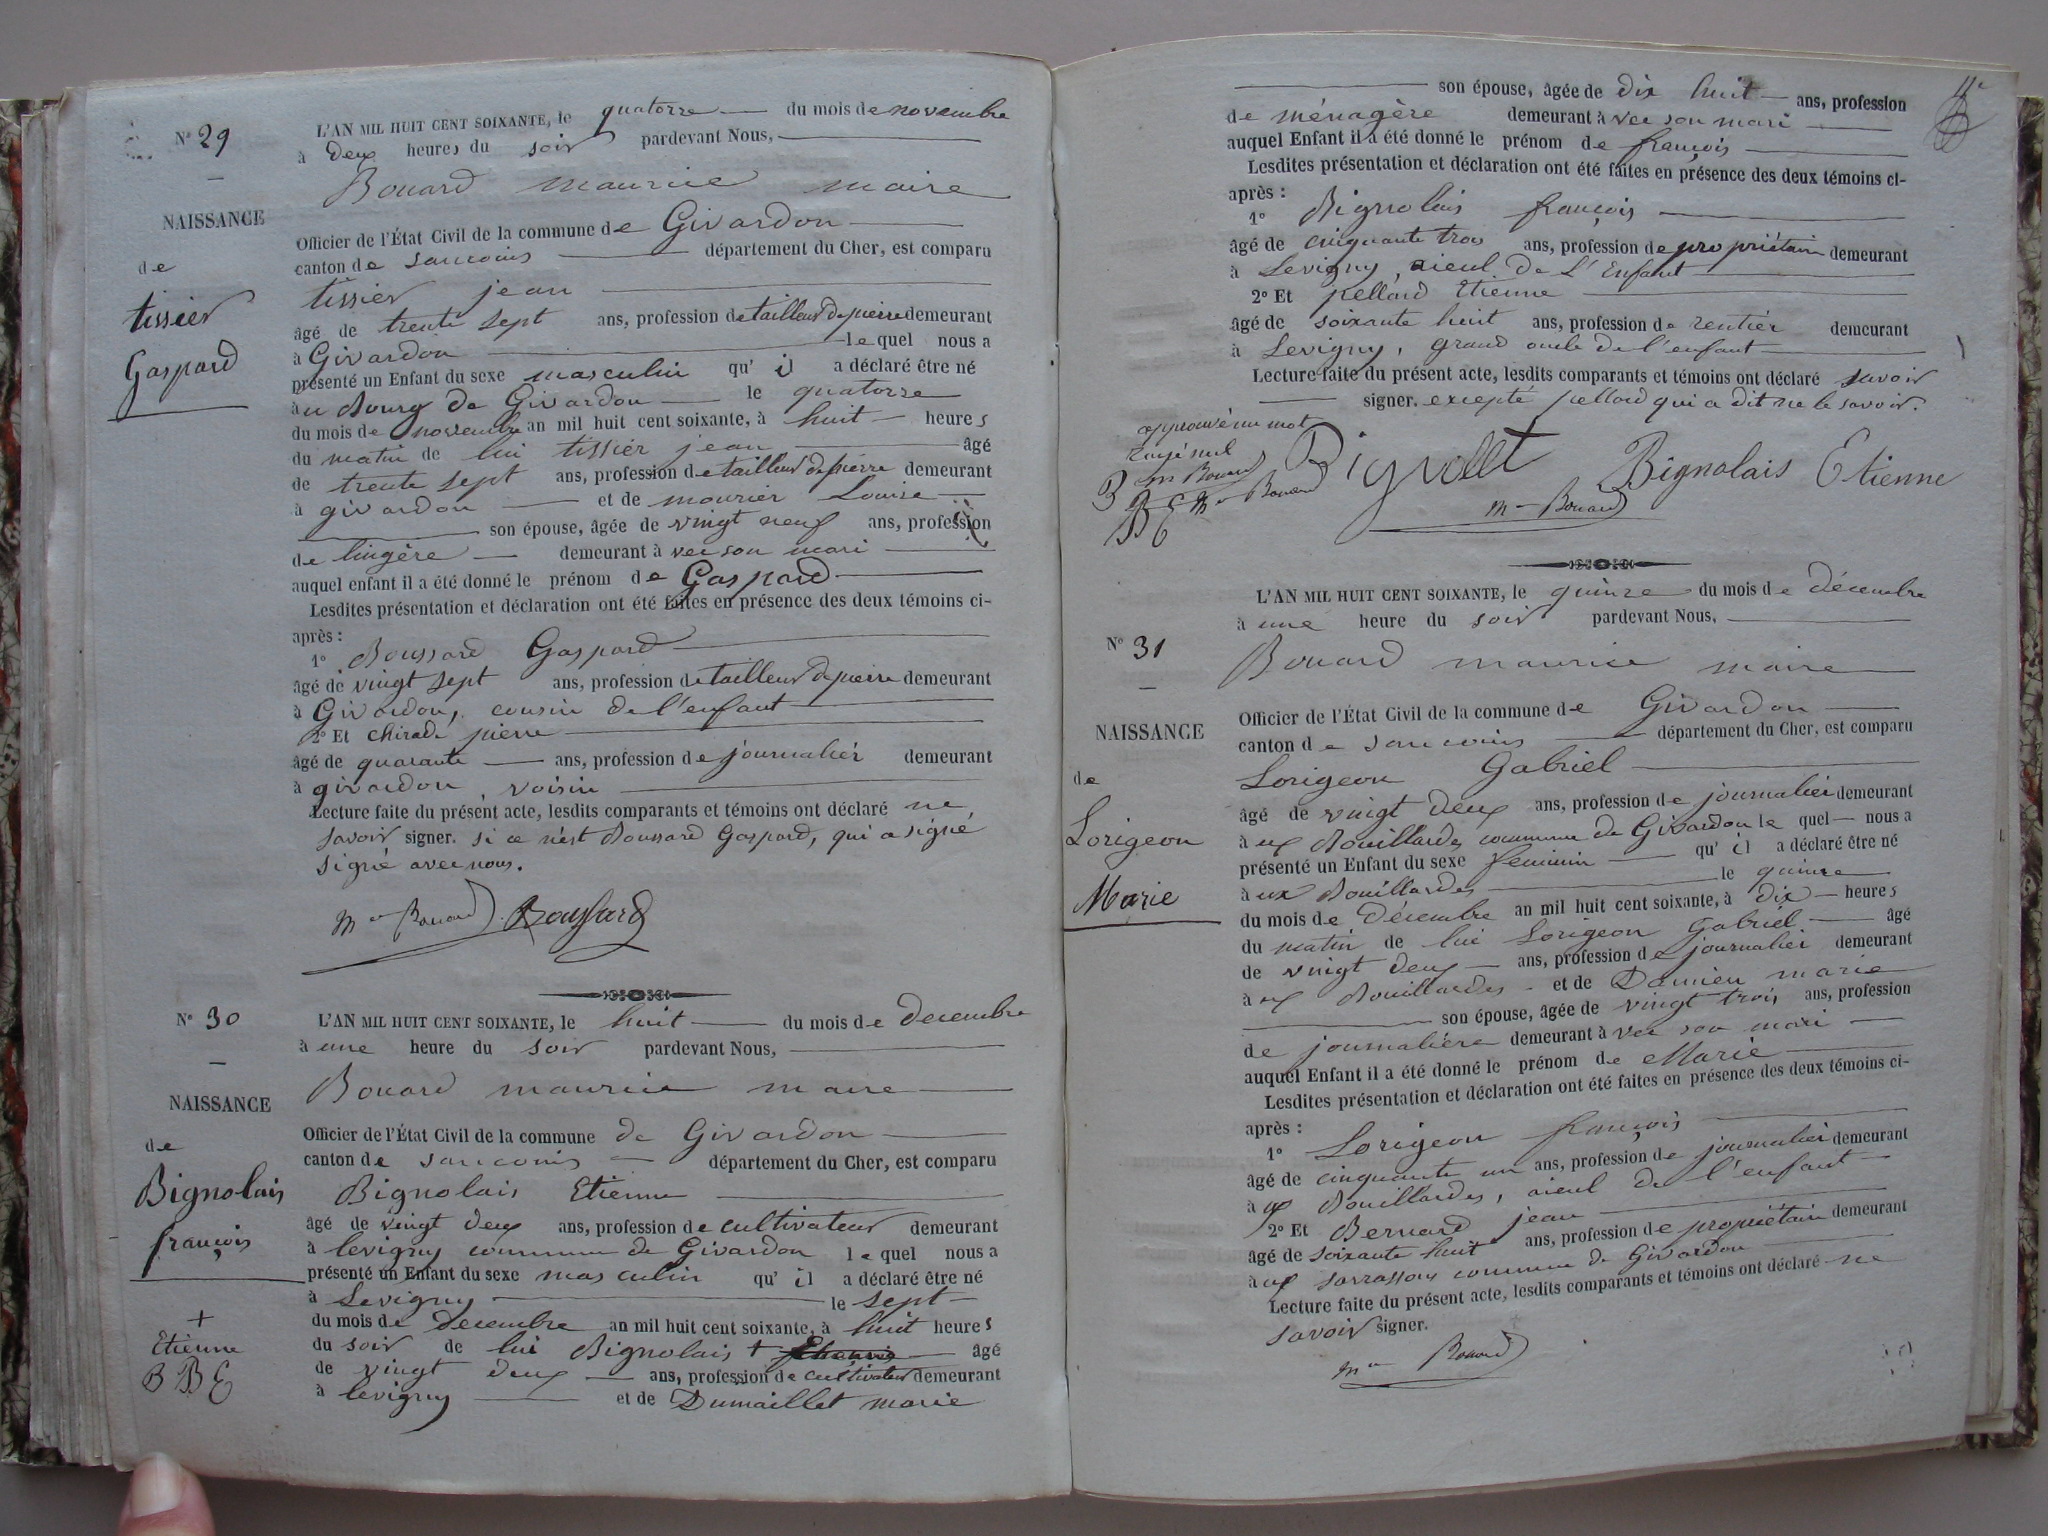 N° 29
NAISSANCE
de
tissier
Gaspard
L'AN MIL HUIT CENT SOIXANTE, le quatorze du mois de novembre
à deux heures du soir pardevant Nous,
Bouard maurice maire
Officier de l'État Civil de la commune de Givardon
canton de sancoins département du Cher, est comparu
tissier jean
âgé de trente sept ans, profession de tailleur de pierre demeurant
à Givardon le quel nous a
présenté un Enfant du sexe masculin qu' il a déclaré être né
au Bourg de Givardon le quatorze
du mois de novembre an mil huit cent soixante, à huit heures
du matin de lui tissier jean âgé
de trente sept ans, profession de tailleur de pierre demeurant
à givardon et de mourier Louise
son épouse, âgée de vingt neuf ans, profession
de lingère demeurant à vec son mari
auquel enfant il a été donné le prénom de Gaspard
Lesdites présentation et déclaration ont été faites en présence des deux témoins ci-
après :
1° Boussard Gaspard
âgé de vingt sept ans, profession de tailleur de pierre demeurant
à Givardon, cousin de l'enfant
2° Et chirade pierre
âgé de quarante ans, profession de journalier demeurant
à givardon, voisin
Lecture faite du présent acte, lesdits comparants et témoins ont déclaré ne
savoir signer. si ce n'est Boussard Gaspard, qui a signé
signé avec nous.
Mce Bouard Boussard
N° 30
NAISSANCE
de
Bignolais
françois
+
Etienne
B BE
L'AN MIL HUIT CENT SOIXANTE, le huit du mois de decembre
à une heure du soir pardevant Nous,
Bouard maurice maire
Officier de l'État Civil de la commune de Givardon
canton de sancoins département du Cher, est comparu
Bignolais Etienne
âgé de vingt deux ans, profession de cultivateur demeurant
à levigny commune de Givardon le quel nous a
présenté un Enfant du sexe masculin qu' il a déclaré être né
à Levigny le sept
du mois de decembre an mil huit cent soixante, à huit heures
du soir de lui Bignolais + âgé
de vingt deux ans, profession de cultivateur demeurant
à levigny et de Dumaillet marie
son épouse, âgée de dix huit ans, profession
de ménagère demeurant à vec son mari
auquel Enfant il a été donné le prénom de françois
Lesdites présentation et déclaration ont été faites en présence des deux témoins ci-
après :
1° Bignolais françois
âgé de cinquante trois ans, profession de propriétaire demeurant
à Levigny, aieul de l'Enfant
2° Et pellard Etienne
âgé de soixante huit ans, profession de rentier demeurant
à Levigny, grand oncle de l'enfant
Lecture faite du présent acte, lesdits comparants et témoins ont déclaré savoir
signer. excepté pellard qui a dit ne le savoir.
approuvé un mot
rayé nul
Mce Bouard
B BE Mce Bouard
Bignolais Etienne
Mce Bouard
N° 31
NAISSANCE
de
Lorigeon
Marie
L'AN MIL HUIT CENT SOIXANTE, le quinze du mois de décembre
à une heure du soir pardevant Nous,
Bouard maurice maire
Officier de l'État Civil de la commune de Givardon
canton de sancoins département du Cher, est comparu
Lorigeon Gabriel
âgé de vingt deux ans, profession de journalier demeurant
à ux Bouillardes commune de Givardon le quel nous a
présenté un Enfant du sexe feminin qu' il a déclaré être né
à ux Bouillardes le quinze
du mois de Décembre an mil huit cent soixante, à dix heures
du matin de lui Lorigeon Gabriel âgé
de vingt deux ans, profession de journalier demeurant
à ux Bouillardes et de Damien marie
son épouse, âgée de vingt trois ans, profession
de journalière demeurant à vec son mari
auquel Enfant il a été donné le prénom de Marie
Lesdites présentation et déclaration ont été faites en présence des deux témoins ci-
après :
1° Lorigeon françois
âgé de cinquante un ans, profession de journalier demeurant
à ux Bouillardes, aieul de l'enfant
2° Et Bernard jean
âgé de soixante huit ans, profession de propriétaire demeurant
à ux sarrassons commune de Givardon
Lecture faite du présent acte, lesdits comparants et témoins ont déclaré ne
savoir signer.
Mce Bouard